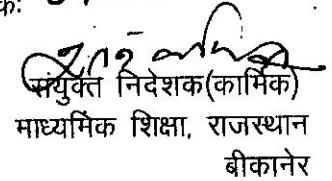 क:
संयुक्त निदेशक(कार्मिक)
माध्यमिक शिक्षा, राजस्थान
बीकानेर